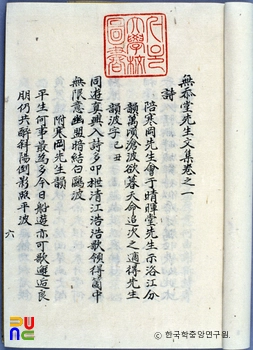 無忝堂先生文集卷之一
詩
陪寒岡先生會于晴暉堂先生示洛江分
韻萬頃滄波欲暮天命追次之適得先生
韻波字 己丑
同遊眞興入詩多卬枻淸江浩浩歌領得箇中
無限意幽盟暗結白鷗波
附寒岡先生韻
平生何事最爲多今日船遊亦可歌邂逅良
朋仍共醉斜陽倒影照平波
六
© 한국학중앙연구원.